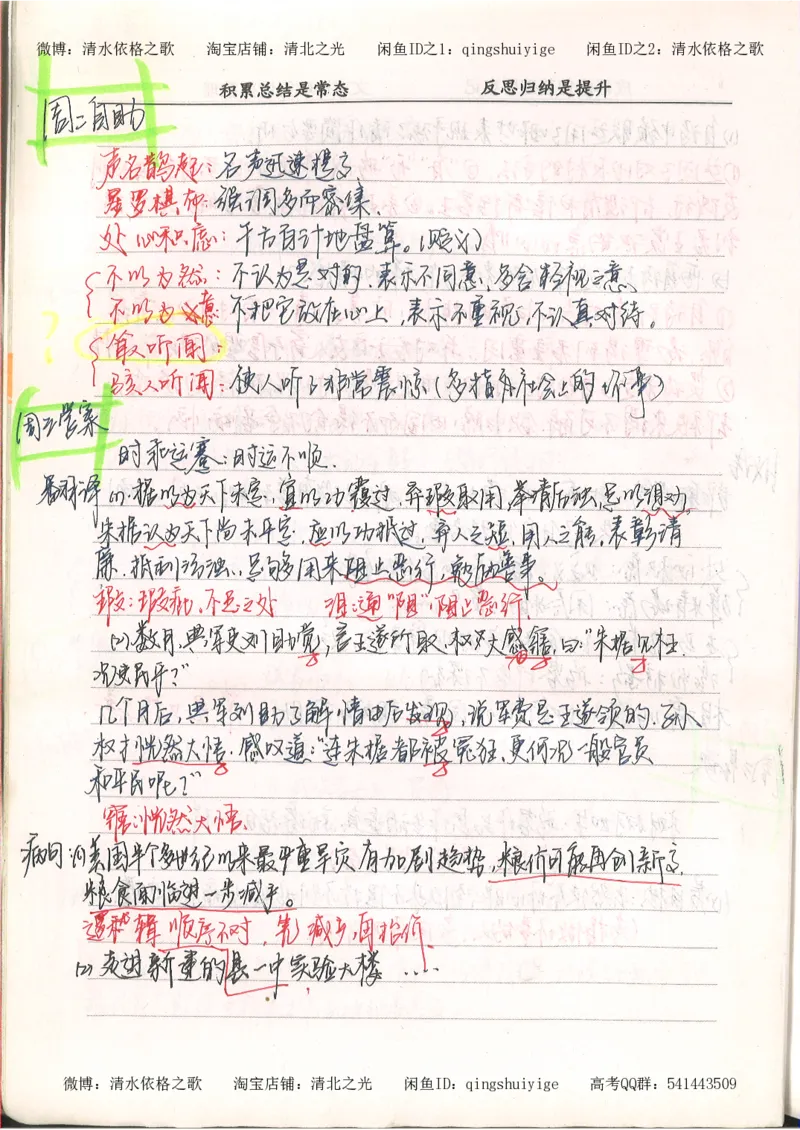 微博：清水依格之歌 淘宝店铺：清北之光 闲鱼ID之1：qingshuiyige 闲鱼ID之2：清水依格之歌
积累总结是常态 反思归纳是提升
周二自助
声名鹊起：名声迅速提高
星罗棋布：强调多而密集.
处心积虑：千方百计地盘算。(贬义)
不以为然：不认为是对的.表示不同意，多含轻视之意.
不以为意 不把它放在心上，表示不重视，不认真对待。
? 耸人听闻：
骇人听闻：使人听了非常震惊(多指社会上的坏事)
周三答案
时乖运蹇：时运不顺.
翻译 (1).据以为天下未定，宜以功覆过，弃瑕取用，举清厉浊，足以沮劝.
朱据认为天下尚未平定，应以功抵过，弃人之短，用人之能，表彰清
廉.抵制污浊.足够用来阻止恶行，勉励善事。
瑕：瑕疵，不足之处 沮：通"阻"，阻止恶行
(2).数月，典军吏刘助觉，言王遂所取.权大感寤，曰："朱据见枉.
况吏民乎？"
几个月后，典军刘助了解情由后发现，说军费是王遂领的.孙
权才恍然大悟.感叹道："连朱据都被冤枉，更何况一般官员
和平民呢？"
寤：恍然大悟.
病句 (1)美国半个多世纪以来最严重旱灾有加剧趋势，粮价可能再创新高.
粮食面临进一步减产。
逻辑顺序不对，先减产，再抬价
(2)走进新建的县一中实验大楼 ....
微博：清水依格之歌 淘宝店铺：清北之光 闲鱼ID：qingshuiyige 高考QQ群：541443509